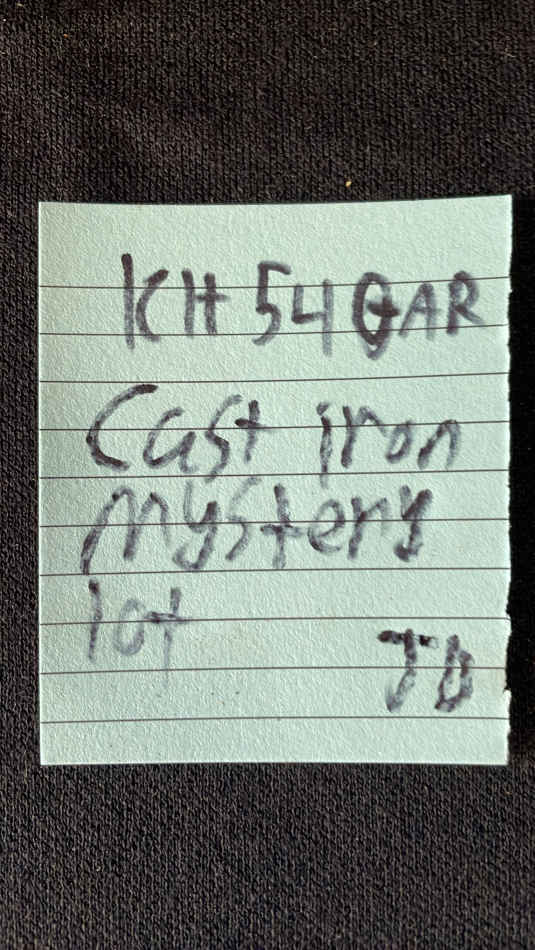 KH 54 GAR
Cast iron
mystery
lot
JD